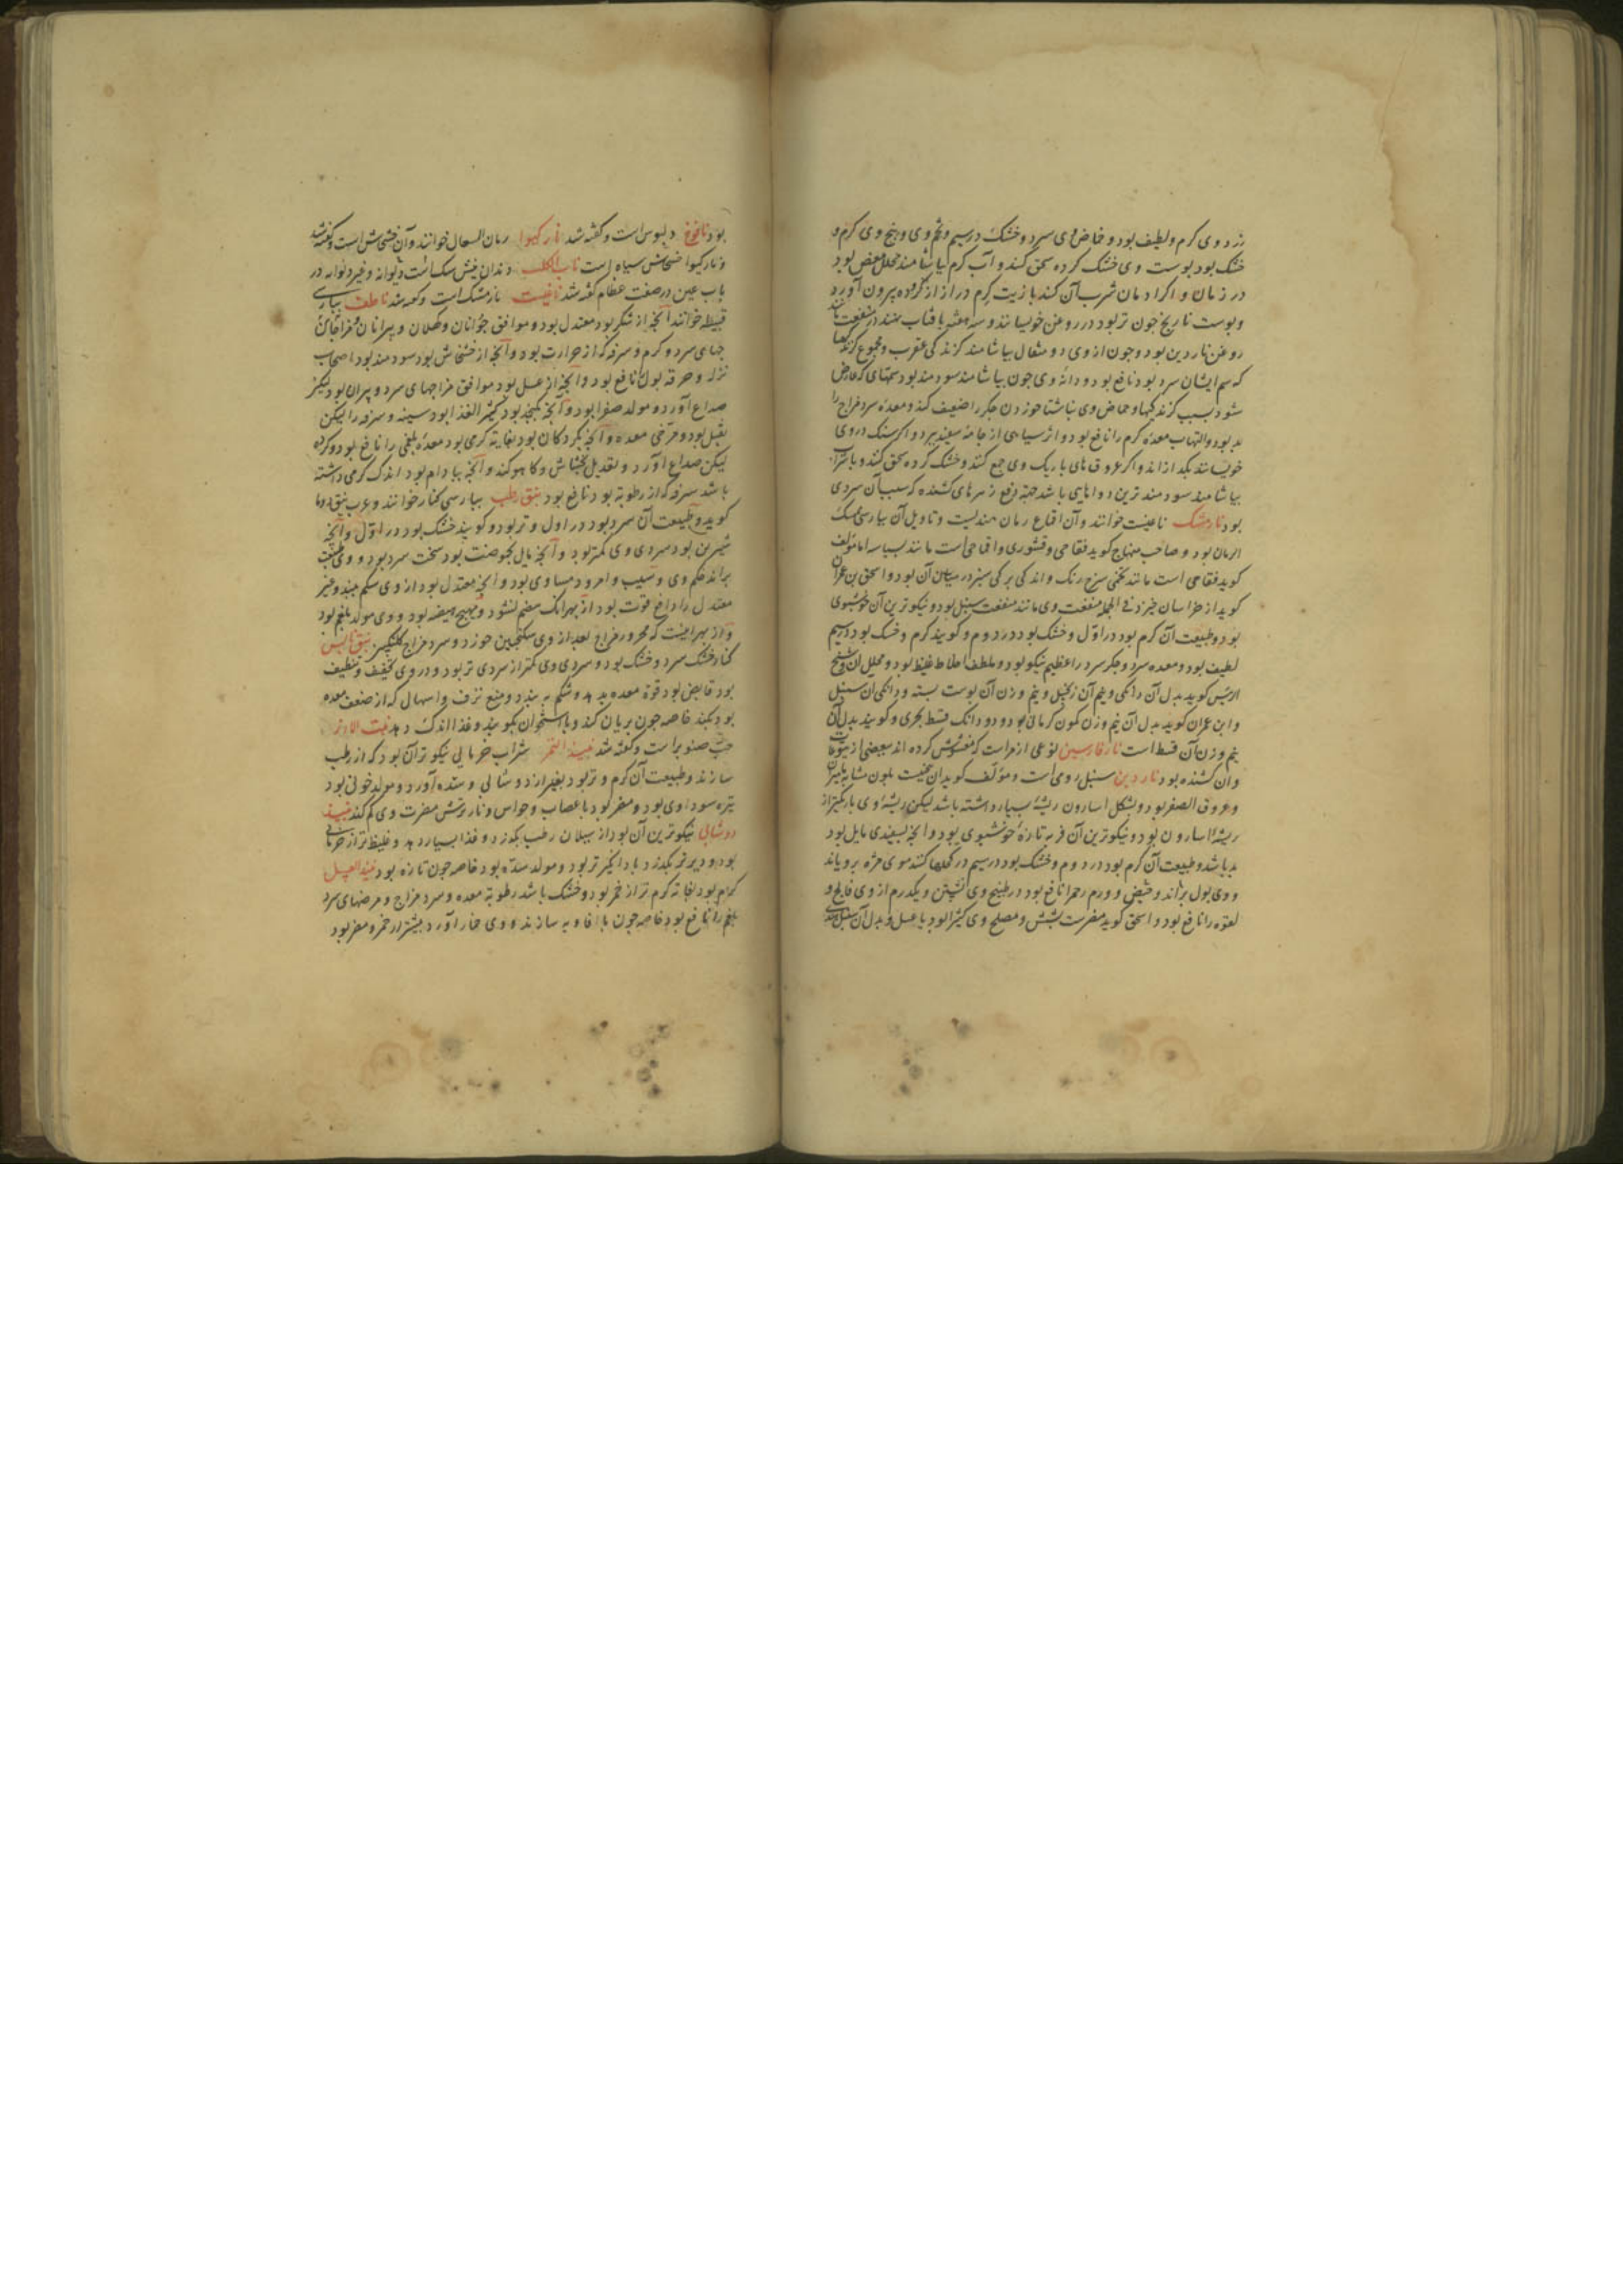 زرد وی گرم و لطیف بود و حماض وی سرد و خشک در سیم و تخم وی و بیخ وی گرم و
خشک بود پوست وی خشک کرده سحق کنند و آب گرم بیاشامند محلل مغص بود
در زمان و اگر ادمان شرب آن کنند با زیت کرم دراز از گرده بیرون آورد
و پوست نارنج چون تر بود در روغن خویسانند و سه هفته بافتاب نهند در منفعت مانند
روغن ناردین بود و چون از وی دو مثقال بیاشامند گزندگی عقرب و مجموع گزندها
که سم ایشان سرد بود نافع بود و دانه وی چون بیاشامند سودمند بود سمهای که عارض
شود بسبب گزندگیها و حماض وی بناشتا خوردن جگر را ضعیف کند و معده سرد مزاج را
بد بود و التهاب معده گرم را نافع بود و اثر سیاهی از جامه سفید ببرد و اگر سنک در وی
خویسانند بگدازاند و اگر عروق های باریک وی جمع کنند و خشک کرده سحق کنند و با شراب
بیاشامند سودمند ترین دواهایی باشد جهة دفع زهرهای کشنده که سبب آن سردی
بود نارمشک ناغیشت خوانند و آن اقماع رمان هندیست و تاویل آن بپارسی مسک
الرمان بود و صاحب منهاج کوید فقاحی و قشوری و اقماعی است مانند بسباسه اما مؤلف
کوید فقاحی است مانند تخمی سرخ رنک و اندکی برکی سبز در میان آن بود و اسحق بن عمران
کوید از خراسان خیزد فی الجمله منفعت وی مانند منفعت سنبل بود و نیکوترین آن خوشبوی
بود و طبیعت آن گرم بود در اول و خشک بود در دوم و کویند گرم و خشک بود در سیم
لطیف بود و معده سرد و جگر سرد را عظیم نیکو بود و ملطف اخلاط غلیظ بود و محلل آن و شیخ
الرئیس کوید بدل آن دانکی و نیم آن زنجبیل و نیم وزن آن پوست پسته و دانکی آن سنبل
و ابن عمران کوید بدل آن نیم وزن کمون کرمانی بود و دو دانک قسط بحری و کویند بدل آن
نیم وزن آن قسط است نارفارسین نوعی از مر است که مغشوش کرده اند ببعضی از یتوعات
و آن کشنده بود ناردین سنبل رومی است و مؤلف کوید آن بیخیست بلون مشابه مامیران
و عروق الصفر بود و بشکل اسارون ریشه بسیار داشته باشد لیکن ریشه وی باریکتر از
ریشه اسارون بود و نیکوترین آن فربه تازه خوشبوی بود و آنچه بسفیدی مایل بود
بد باشد و طبیعت آن گرم بود در دوم و خشک بود در سیم در کحلها کنند موی مژه برویاند
و وی بول براند و حیض و ورم رحم را نافع بود در طبیخ وی نشستن و یکدرم از وی فالج و
لقوه را نافع بود و اسحق کوید مضرست بشش و مصلح وی کثیرا بود با عسل و بدل آن سنبل هندی
بود نافوخ دلبوس است و گفته شد نارکیوا رمان السعال خوانند و آن خشخاش است و گفته شد
و نارکیوا خشخاش سیاه است ناب الکلب دندان نیش سک است دیوانه و غیر دیوانه در
باب عین در صفت عظام گفته شد ناغیشت نارمشک است و گفته شد ناطف بپارسی
قبیطه خوانند آنچه از شکر بود معتدل بود و موافق جوانان و کهلان و پیرانان و مزاجهای
سرد و گرم و سرفه که از حرارت بود و آنچه از خشخاش بود سودمند بود اصحاب
نزله و حرقه بول را نافع بود و آنچه از عسل بود موافق مزاجهای سرد و پیران بود لیکن
صداع آورد و مولد صفرا بود و آنچه بکنجد بود کثیر الغذا بود سینه و سرفه را لیکن
ثقیل بود و مرخی معده و آنچه بگردکان بود بغایة گرمی بود معده بلغمی را نافع بود و گرده
لیکن صداع آورد و تعدیل بخشخاش و کاهو کند و آنچه ببادام بود اندک گرمی داشته
باشد سرفه که از رطوبة بود نافع بود نبق رطب بپارسی کنار خوانند و عرب نبق دوما
کوید و طبیعت آن سرد بود در اول و تر بود و کویند خشک بود در اول و آنچه
شیرین بود سردی وی کمتر بود و آنچه مایل بحموضت بود سخت سرد بود و وی طبیعت
براند حکم وی و سیب و امرود مساوی بود و آنچه معتدل بود از وی شکم ببندد و غیر
معتدل را دافع قوت بود از بهر انک هضم نشود و مهیج هیضه بود و وی مولد بلغم بود
و از بهر اینست که محرور مزاج بعد از وی سکنجبین خورد و سرد مزاج گلنگبین نبق یابس
کنار خشک سرد و خشک بود و سردی وی کمتر از سردی تر بود و در وی تجفیف و تلطیف
بود قابض بود قوة معده بدهد و شکم ببندد و منع نزف و اسهال که از ضعف معده
بود بکند خاصه چون بریان کنند و با استخوان بکوبند و غذا اندک دهد نبت الادنر
حب صنوبر است و گفته شد نبیذ التمر شراب خرمایی نیکوتر آن بود که از رطب
سازند و طبیعت آن گرم و تر بود بغیر از دوشابی و سده آورد و مولد خونی بود
تیره سوداوی بود و مضر بود باعصاب و حواس و نار ترش مضرت وی کم کند نبیذ
دوشابی نیکوترین آن بود از سیلان رطب بگذرد و غذا بسیار دهد و غلیظ تر از خرمایی
بود و دیرتر بگذرد با دانگیزتر بود و مولد سده بود خاصه چون تازه بود نبیذ العسل
گرم بود بغایة گرم تر از خمر بود و خشک باشد رطوبة معده و سرد مزاج و مرضهای سرد
بلغم را نافع بود خاصه چون با افاویه سازند و وی خمار آورد بیشتر از خمر و مضر بود